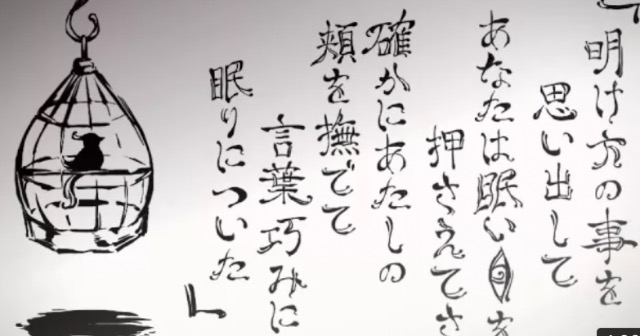 「
明け方の事を
思い出して
あなたは眠いを
押さえてさ
確かにあたしの
頬を撫でて
言葉巧みに
眠りについた
」